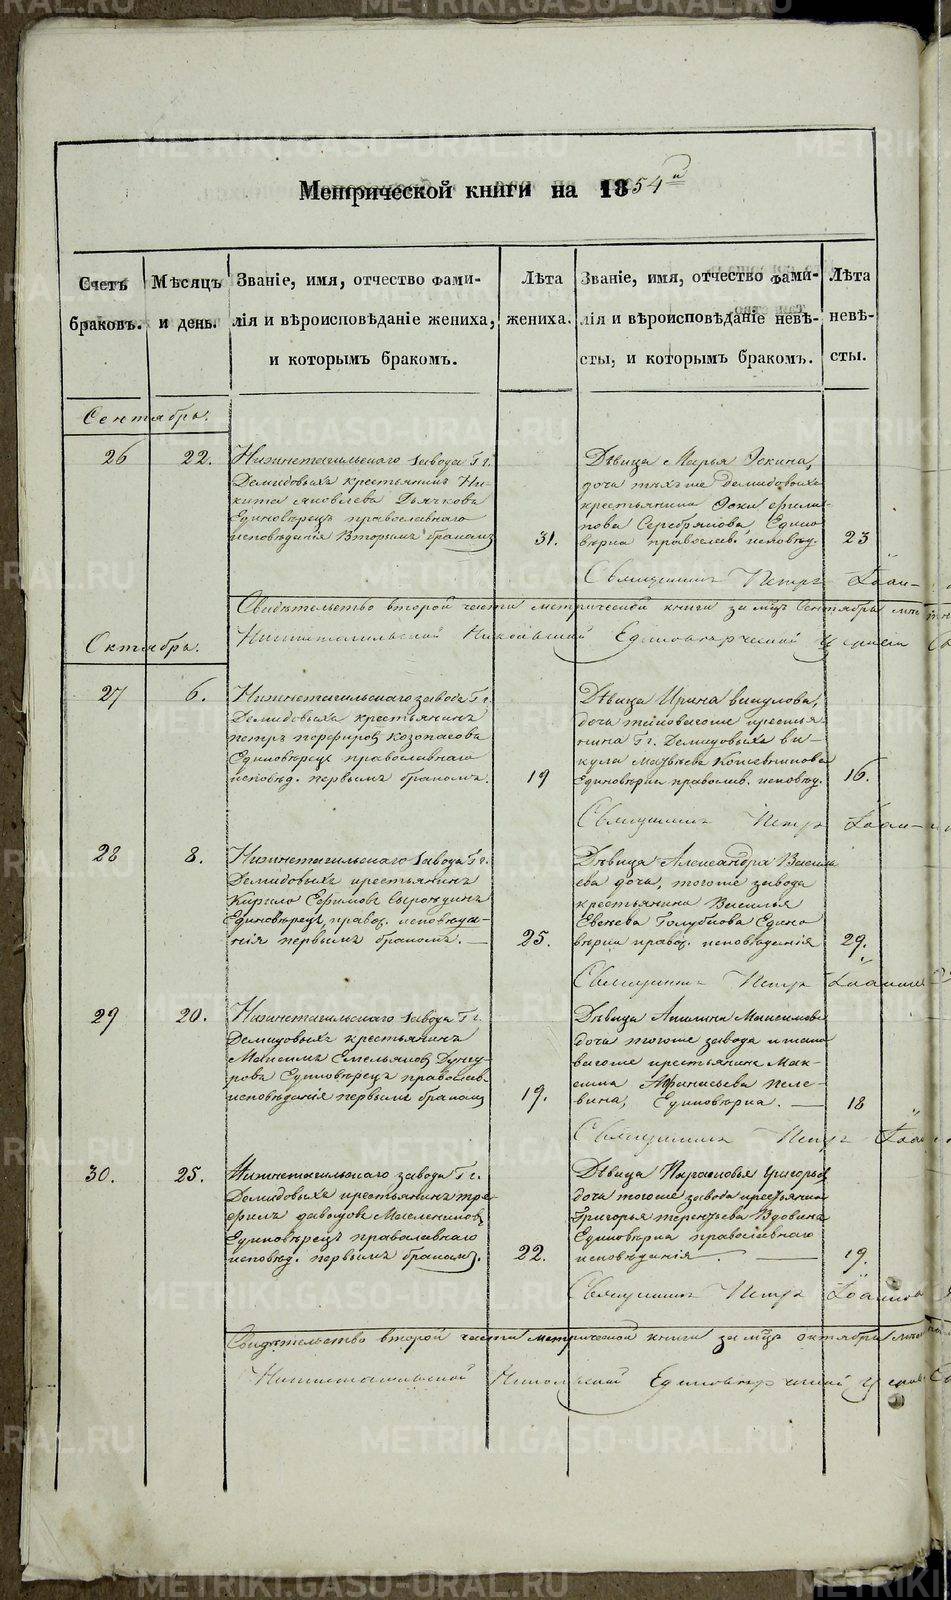 Метрической книги на 1854й
Счетъ браковъ.
Мѣсяцъ и день.
Званіе, имя, отчество фами-
лія и вѣроисповѣданіе жениха,
и которымъ бракомъ.
Лѣта жениха.
Званіе, имя, отчество фами-
лія и вѣроисповѣданіе невѣ-
сты, и которымъ бракомъ.
Лѣта невѣ-
сты.
Сентябрь.
26
22.
Нижнетагильскаго завода Гг.
Демидовыхъ крестьянинъ Ни-
кита Яковлевъ Дьячковъ
Единовѣрецъ православнаго
исповѣданія Вторымъ бракомъ
31.
Дѣвица Марья
дочь тѣхъ же Демидовыхъ
крестьянина
Серебрякова, Едино
вѣрка православ. исповѣд.
23
Священникъ Петръ Іоан-
Свидѣтельство второй части метрической книги за мцъ Сентябрь
Николаевской Единовѣрческой Церкви
Октябрь.
27
6.
Нижнетагильскаго завода Гг.
Демидовыхъ крестьянинъ
петръ порфировъ Козопасовъ
Единовѣрецъ православнаго
исповѣд. первымъ бракомъ.
19
Дѣвица Ирина викулова,
дочь крестья-
нина Гг. Демидовыхъ ви-
кула Матвѣева Кожевникова
Единовѣрка православ. исповѣд.
16.
Священникъ Петръ Іоан-
28
8.
Нижнетагильскаго завода Гг.
Демидовыхъ крестьянинъ
Кирило Ефимовъ
Единовѣрецъ правос. исповѣда-
нія первымъ бракомъ. —
25.
Дѣвица Александра Василь
ева дочь, тогоже завода
крестьянина Василья
Голубкова Едино
вѣрка правос. исповѣданія
29.
Священникъ Петръ
29
20.
Нижнетагильскаго завода Гг.
Демидовыхъ крестьянинъ
Максимъ Емельяновъ
Единовѣрецъ православ.
исповѣданія первымъ бракомъ
19.
Дѣвица Акилина Максимова
дочь тогоже завода
крестьянина Мак-
сима Афанасьева Пеле-
вина, Единовѣрка. —
18
Священникъ Петръ
30.
25.
Нижнетагильскаго завода Гг.
Демидовыхъ крестьянинъ тро-
фимъ давыдовъ Масленниковъ
Единовѣрецъ православнаго
исповѣд. первымъ бракомъ.
22.
Дѣвица Парасковья григорьев
дочь тогоже завода крестьянина
Григорья терентьева Вдовина
Единовѣрка православнаго
исповѣданія. —
19.
Священникъ Петръ Іоанновъ
Свидѣтельство второй части метрической книги за мцъ октябрь
Нижнетагильской Никольской Единовѣрческой Церкви
METRIKI.GASO-URAL.RU